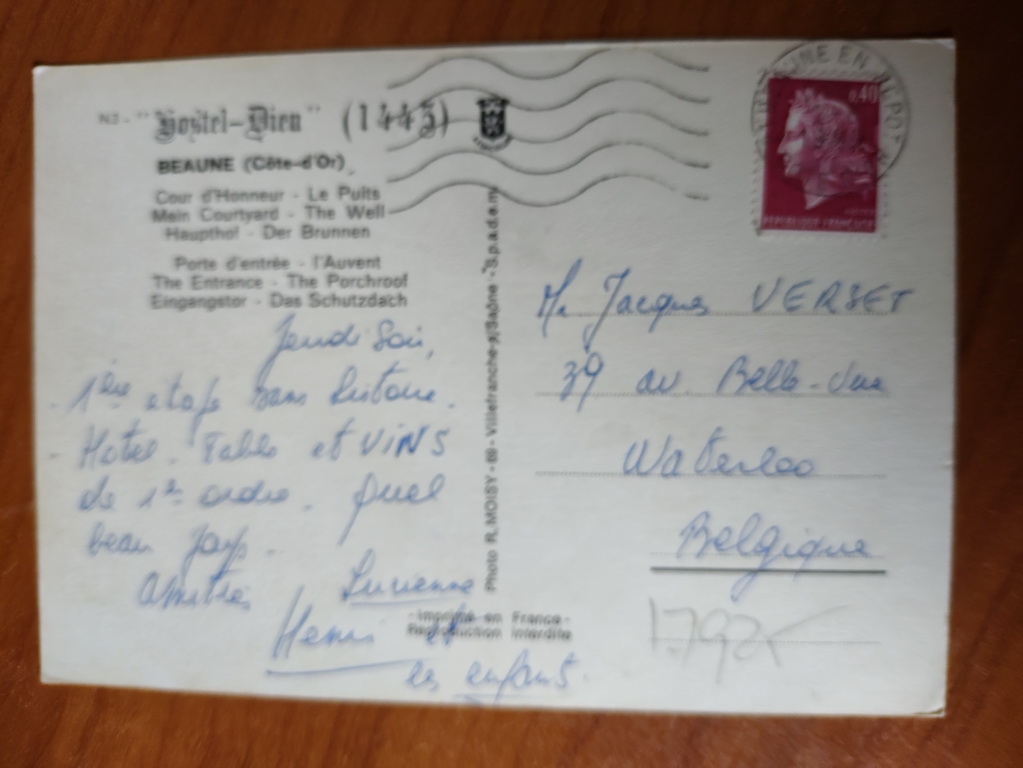 N3 - "Hostel-Dieu" (1443)
BEAUNE (Côte-d'Or)
Cour d'Honneur - Le Puits
Main Courtyard - The Well
Haupthof - Der Brunnen
Porte d'entrée - l'Auvent
The Entrance - The Porchroof
Eingangstor - Das Schutzdach
Jeudi Soir,
1ère étape sans histoire.
Hotel. Table et VINS
de 1er ordre. Quel
beau pays.
Amitiés
Lucienne
Henri et
les enfants.
- Imprimé en France -
Reproduction interdite
Photo R. MOISY - 69 - Villefranche-s/Saône - S.p.a.d.e.m.
0,40
REPUBLIQUE FRANÇAISE
M. Jacques VERSET
39 av. Belle-Vue
Waterloo
Belgique